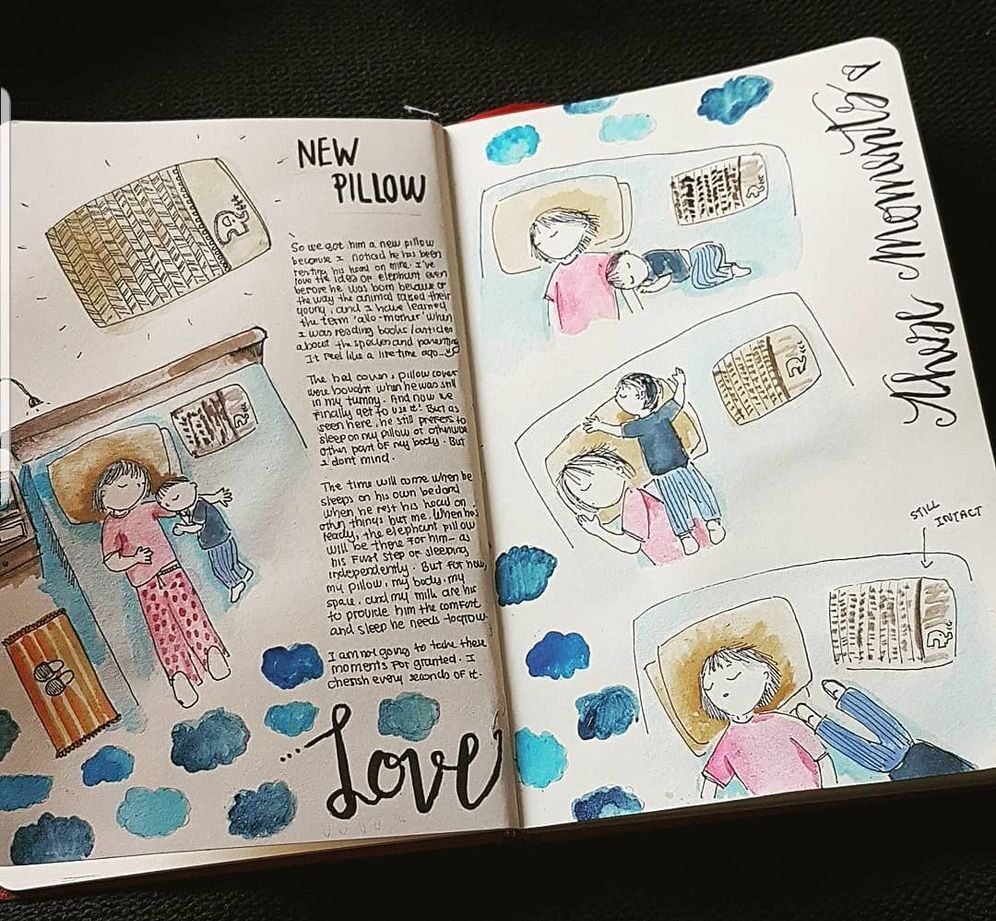 NEW
PILLOW
So we got him a new pillow
because I noticed he has been
resting his head on mine. I've
love the idea of elephant even
before he was born because of
the way the animal raised their
young, and I have learned
the term 'allo-mother' when
I was reading books/articles
about the species and parenting
It feel like a lifetime ago
The bed cover, pillow cover
were bought when he was still
in my tummy. And now we
finally get to use it! But as
seen here, he still prefers to
sleep on my pillow or otherwise
other part of my body. But
I dont mind.
The time will come when he
sleeps on his own bed and
when he rest his head on
other things but me. When he's
ready, the elephant pillow
will be there for him — as
his first step of sleeping
independently. But for now,
my pillow, my body, my
space, and my milk are his
to provide him the comfort
and sleep he needs to grow.
I am not going to take these
moments for granted. I
cherish every seconds of it.
...Love
these moments
STILL
INTACT